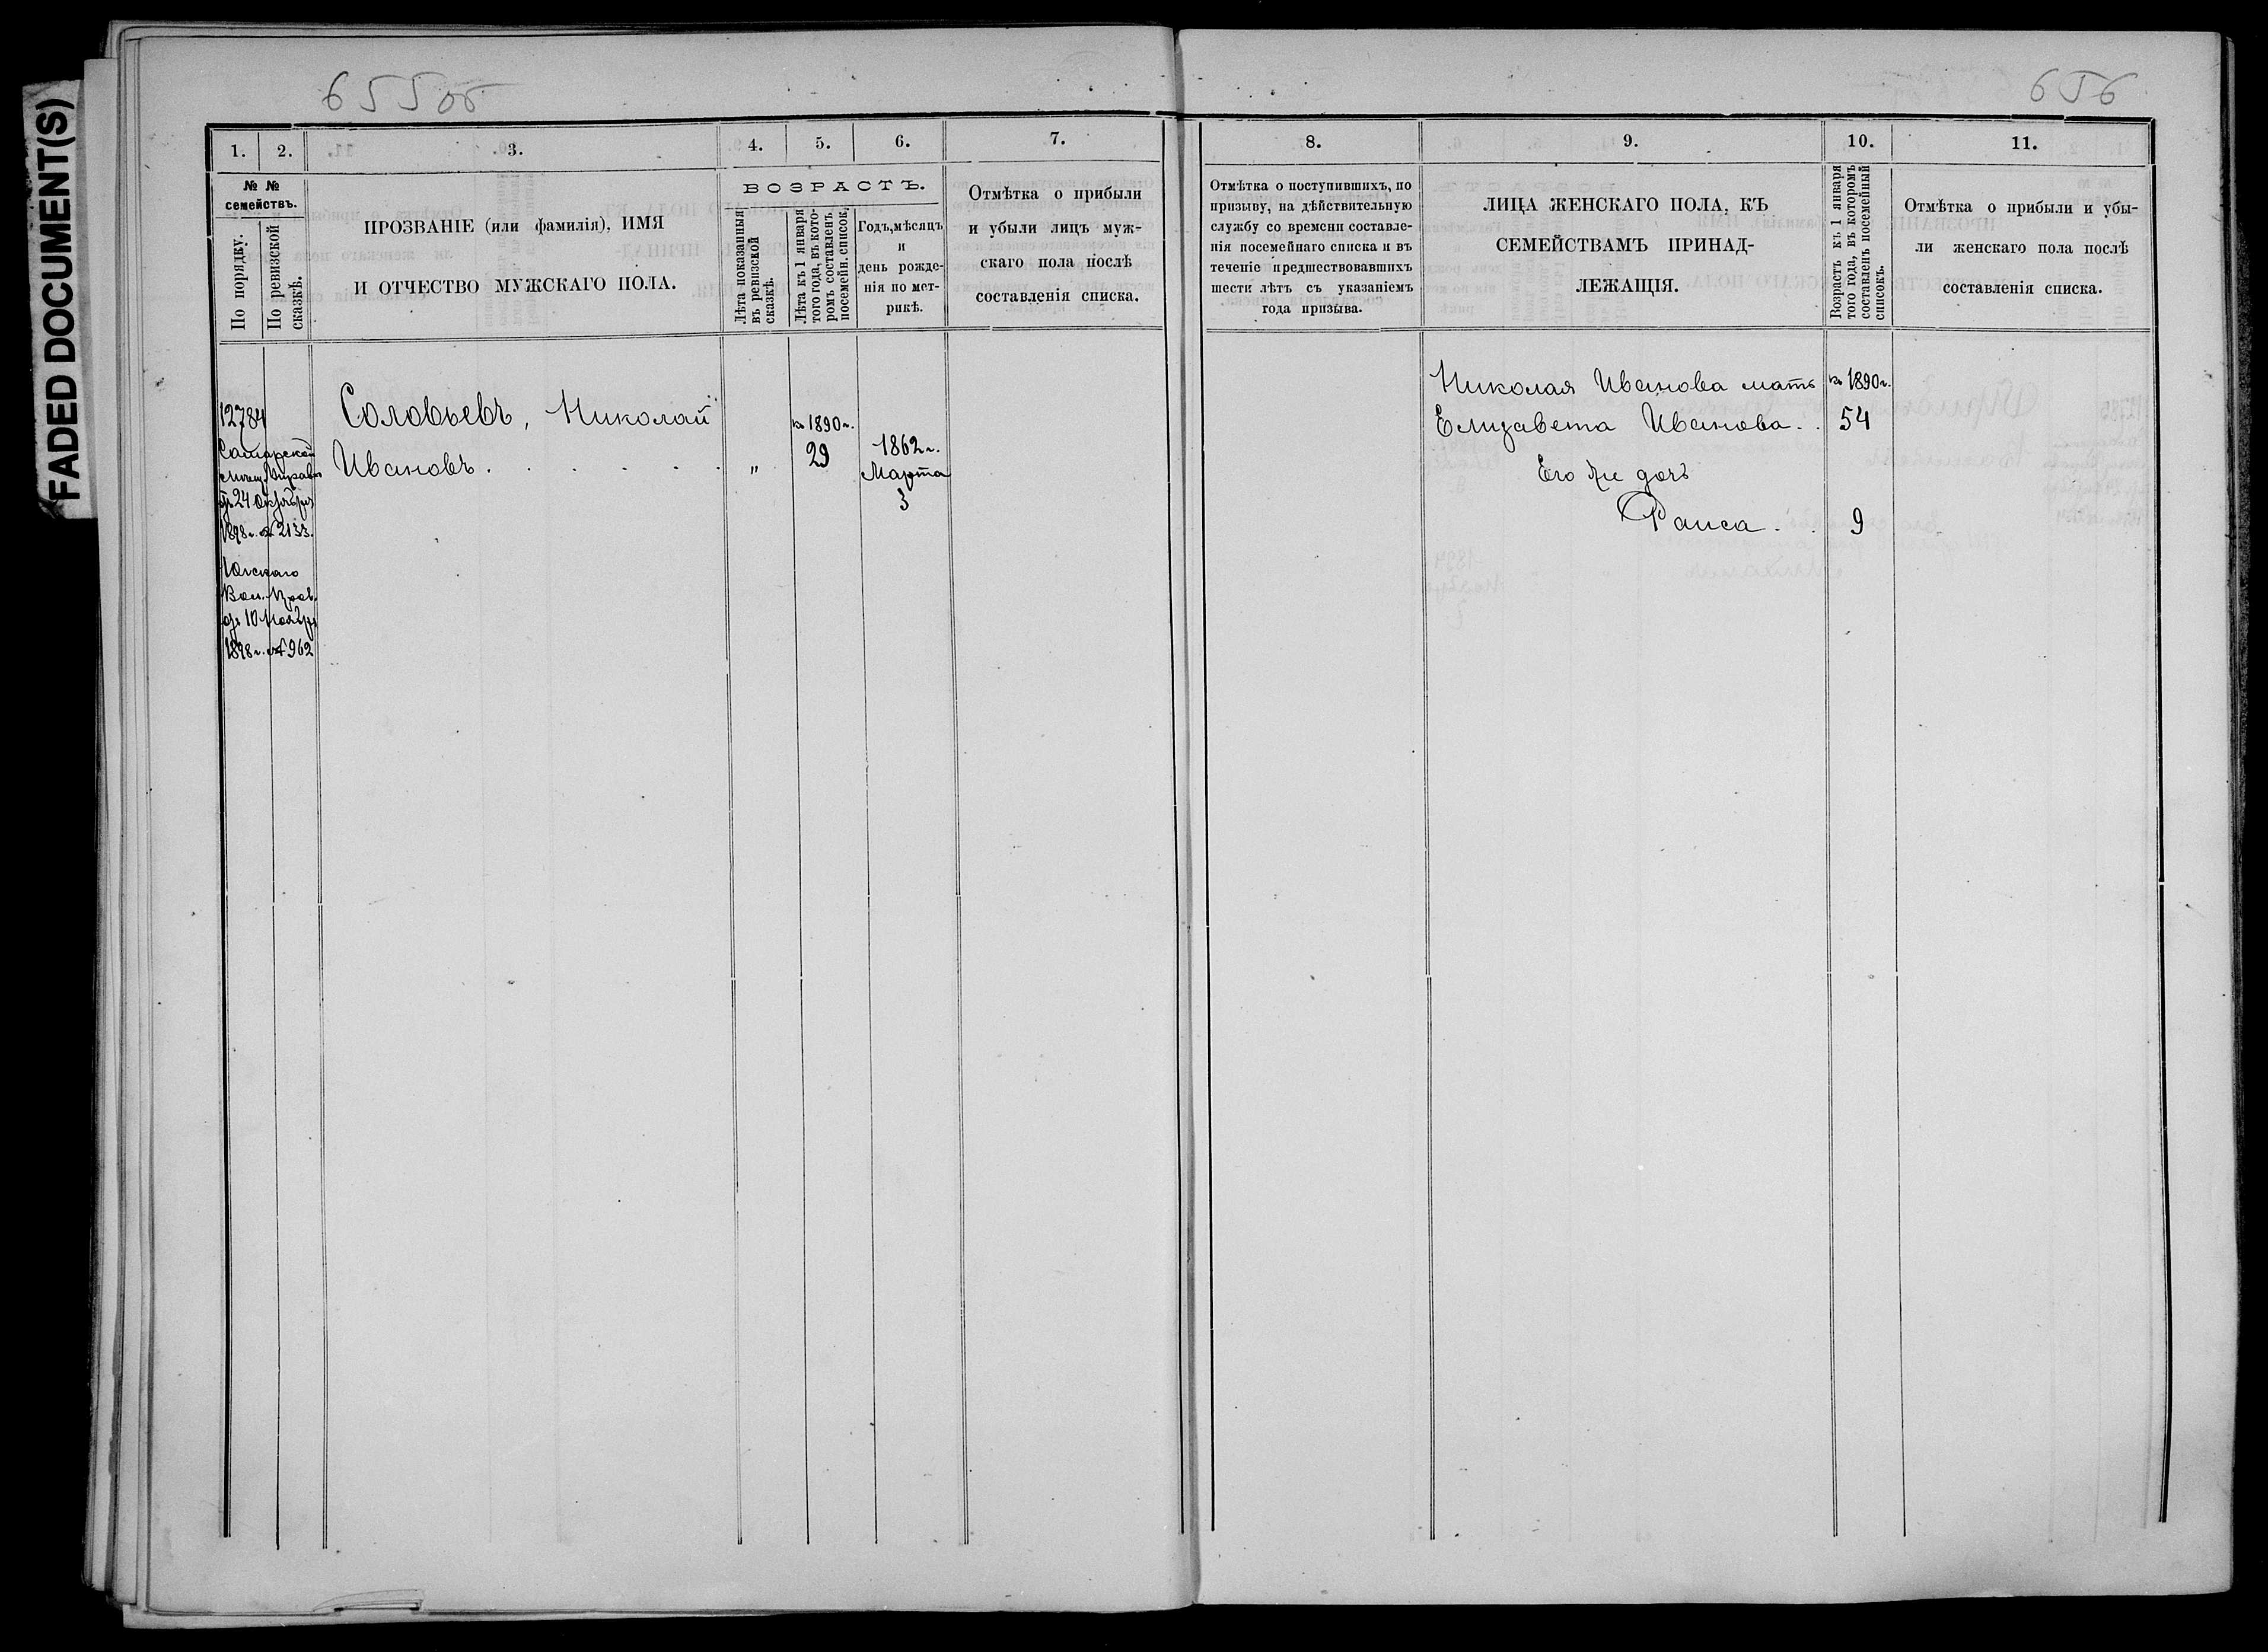 FADED DOCUMENT(S)
655об
656
1. 2. 3. 4. 5. 6. 7.
№ № семействъ.
По порядку.
По ревизской сказкѣ.
ПРОЗВАНІЕ (или фамилія), ИМЯ
И ОТЧЕСТВО МУЖСКАГО ПОЛА.
ВОЗРАСТЪ.
Лѣта показанныя
въ ревизской
сказкѣ.
Лѣта къ 1 января
того года, въ кото-
ромъ составленъ
посемейн. список.
Годъ, мѣсяцъ
и
день рожде-
нія по мет-
рикѣ.
Отмѣтка о прибыли
и убыли лицъ муж-
скаго пола послѣ
составленія списка.
12784
Самарской
мѣщ. Управы
отъ 24 Октября
1898 г. № 2133.
Вол. Прав.
отъ 10 Ноября
1898 г. № 962
Соловьевъ, Николай
Ивановъ . . . . . .
"
къ 1890 г.
29
1862 г.
Марта
3
8. 9. 10. 11.
Отмѣтка о поступившихъ, по
призыву, на дѣйствительную
службу со времени составле-
нія посемейнаго списка и въ
теченіе предшествовавшихъ
шести лѣтъ съ указаніемъ
года призыва.
ЛИЦА ЖЕНСКАГО ПОЛА, КЪ
СЕМЕЙСТВАМЪ ПРИНАД-
ЛЕЖАЩІЯ.
Возрастъ къ 1 января
того года, въ которомъ
составленъ посемейный
списокъ.
Отмѣтка о прибыли и убы-
ли женскаго пола послѣ
составленія списка.
Николая Иванова мать къ 1890 г.
Елизавета Иванова . . 54
Его же дочь
Раиса . . 9